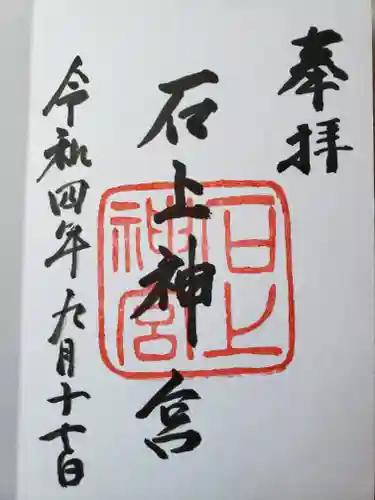 奉拝
石上神宮
石上神宮
令和四年九月十七日